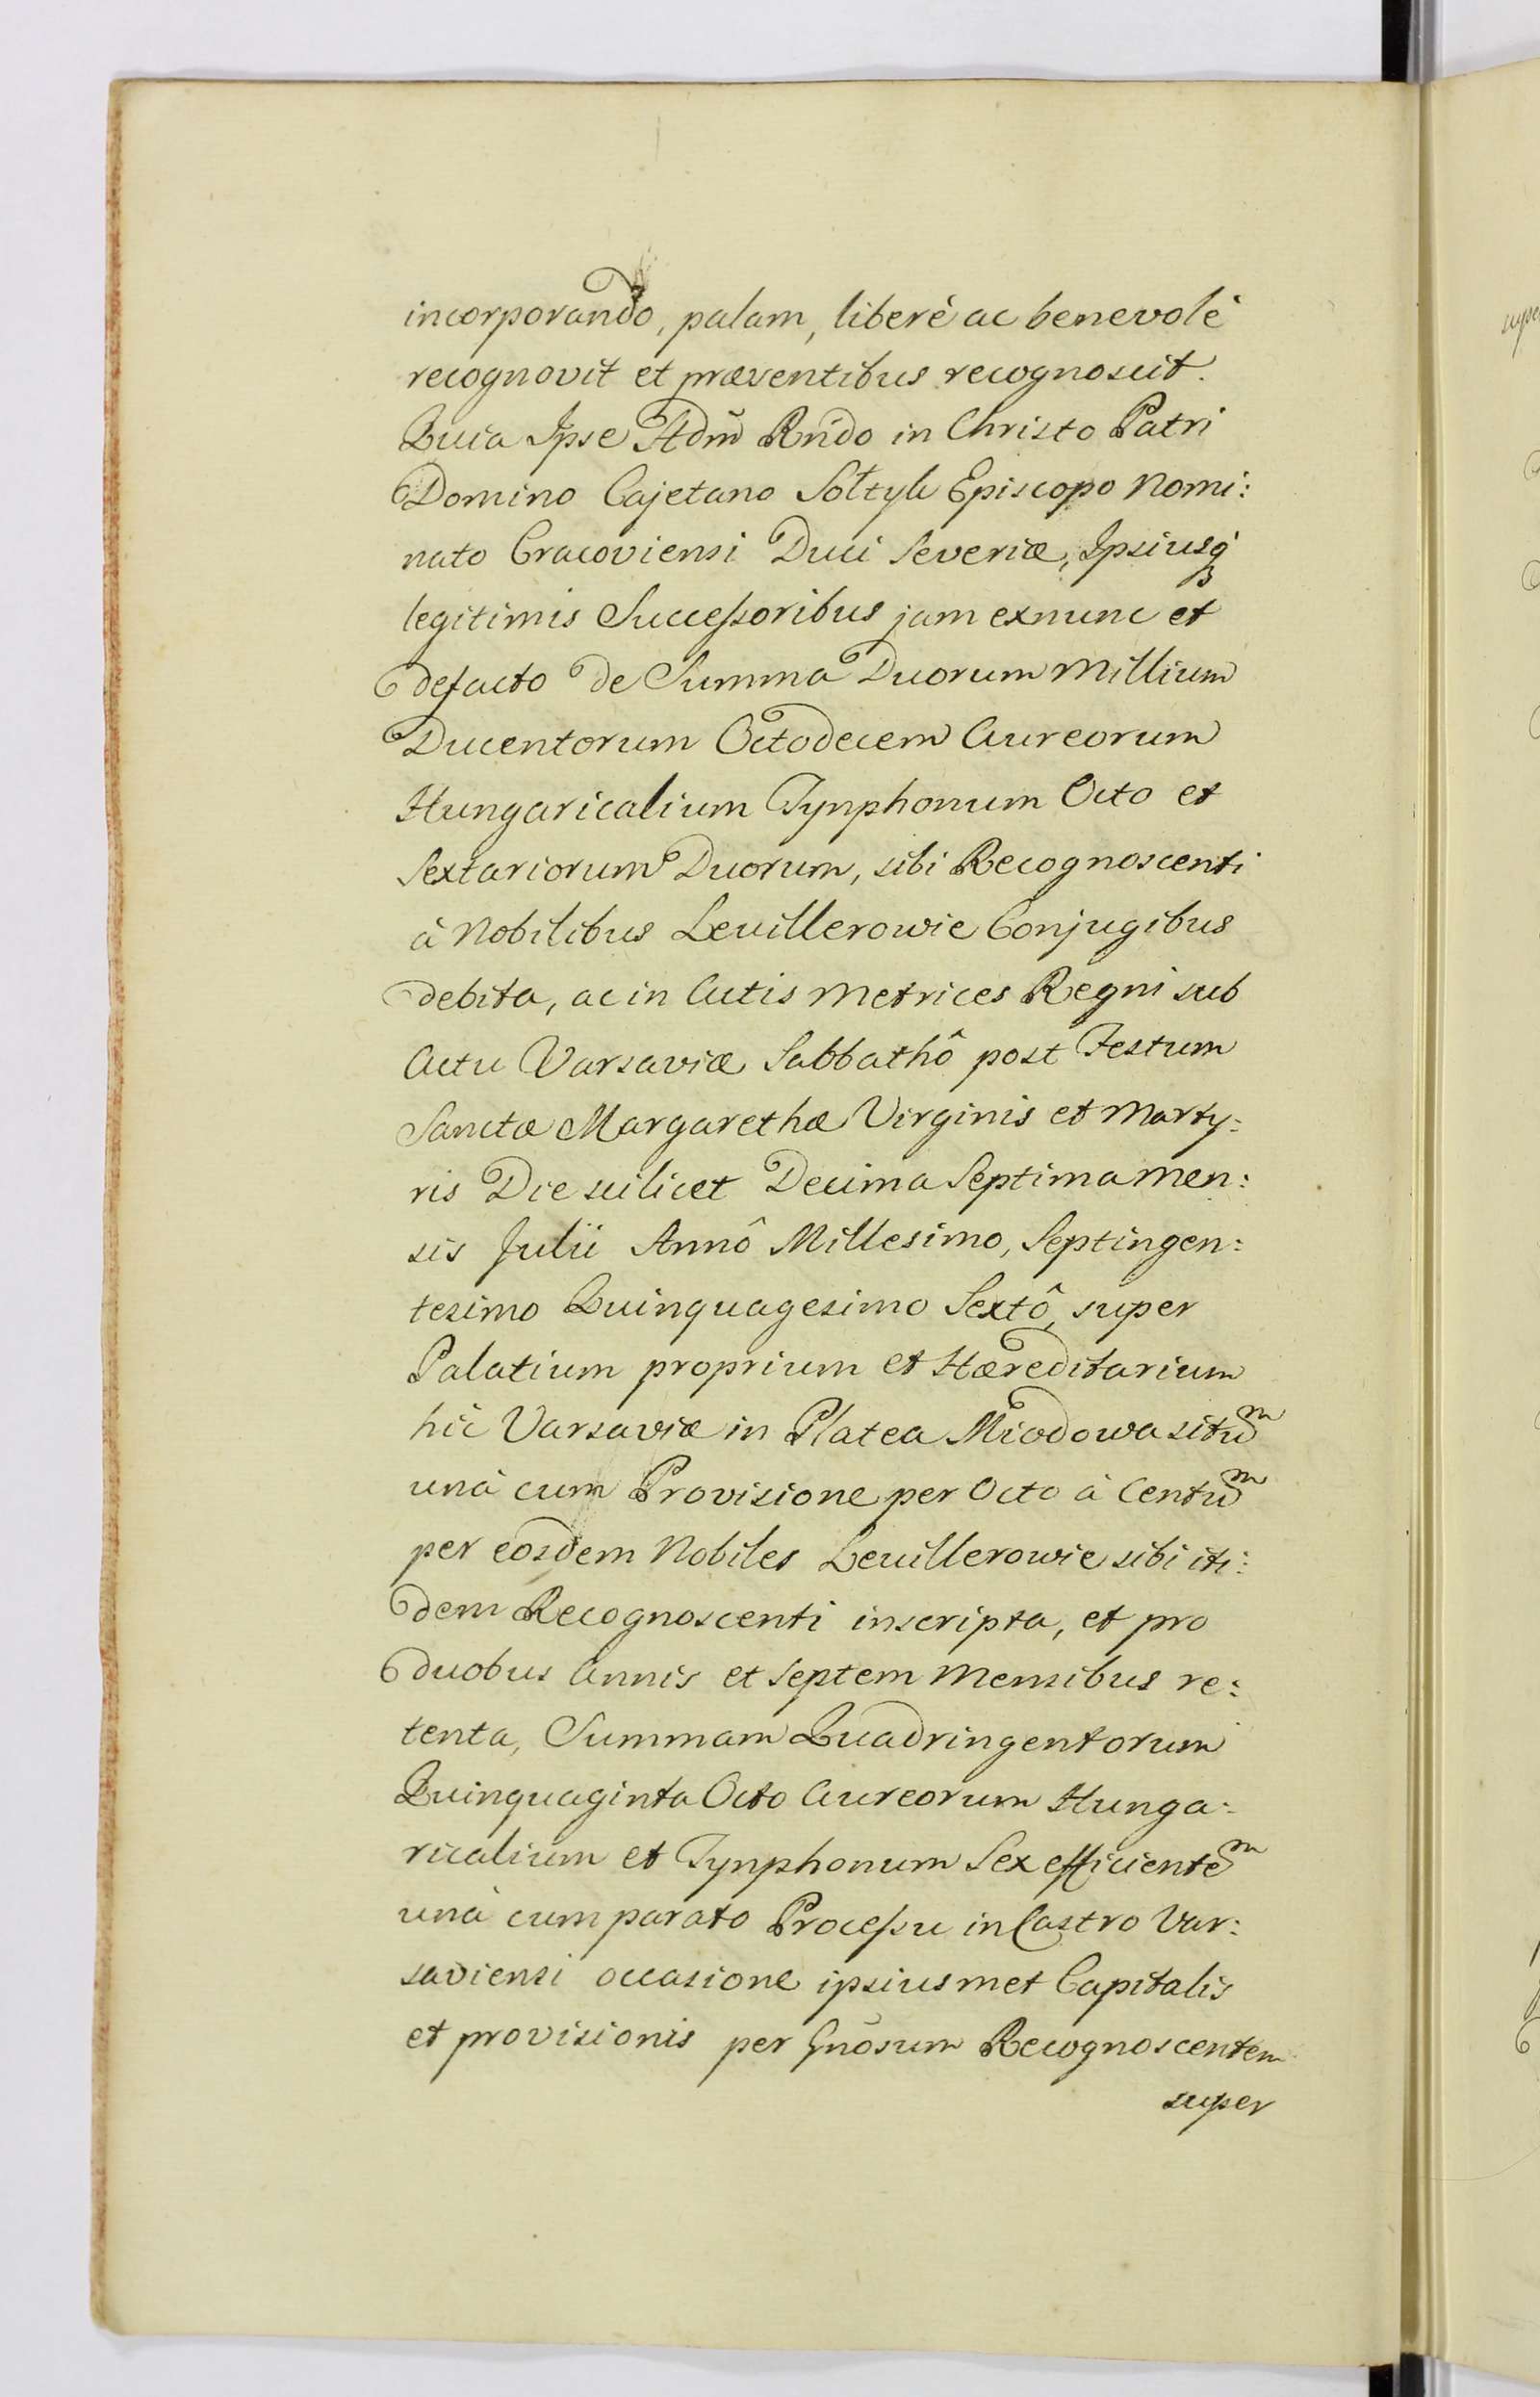 incorporando, palam, liberè ac benevolè
recognovit et præsentibus recognoscit.
Quia Ipse Adm̃ Rñdo in Christo Patri
Domino Cajetano Sołtyk Episcopo Nomi:
nato Cracoviensi Duci Severiæ, Ipsiusq́
legitimis Successoribus jam exnunc et
defacto de Summa Duorum Millium
Ducentorum Octodecem Aureorum
Hungaricalium Tynphonum Octo et
Sextariorum Duorum, sibi Recognoscenti
à Nobilibus Leuillerowie Conjugibus
debita, ac in Actis Metrices Regni sub
Actu Varsaviæ Sabbathô post Festum
Sanctæ Margarethæ Virginis et Marty:
ris Die scilicet Decima Septima Men:
sis Julii Annô Millesimo, Septingen:
tesimo Quinquagesimo Sextô, super
Palatium proprium et Hæreditarium
hic Varsaviæ in Platea Miodowa situm
unà cum Provisione per Octo à Centum
per eosdem Nobiles Leuillerowie sibi iti:
dem Recognoscenti inscripta, et pro
duobus Annis et Septem Mensibus re:
tenta, Summam Quadringentorum
Quinquaginta Octo Aureorum Hunga:
ricalium et Tynphonum Sex efficientem
unà cum parato Processu in Castro Var:
saviensi occasione ipsiusmet Capitalis
et provisionis per Gñosum Recognoscentem
super